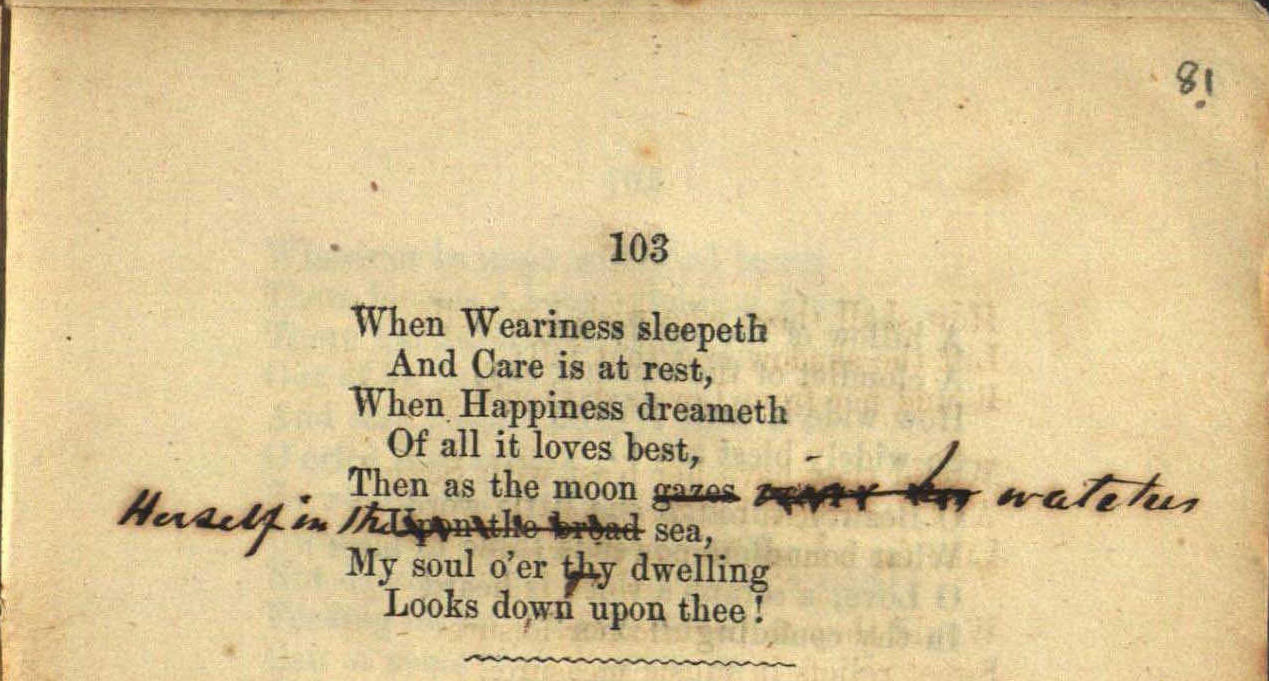 81
103
When Weariness sleepeth
And Care is at rest,
When Happiness dreameth
Of all it loves best,
Then as the moon gazes watches
Herself in the Upon the broad sea,
My soul o'er thy dwelling
Looks down upon thee!